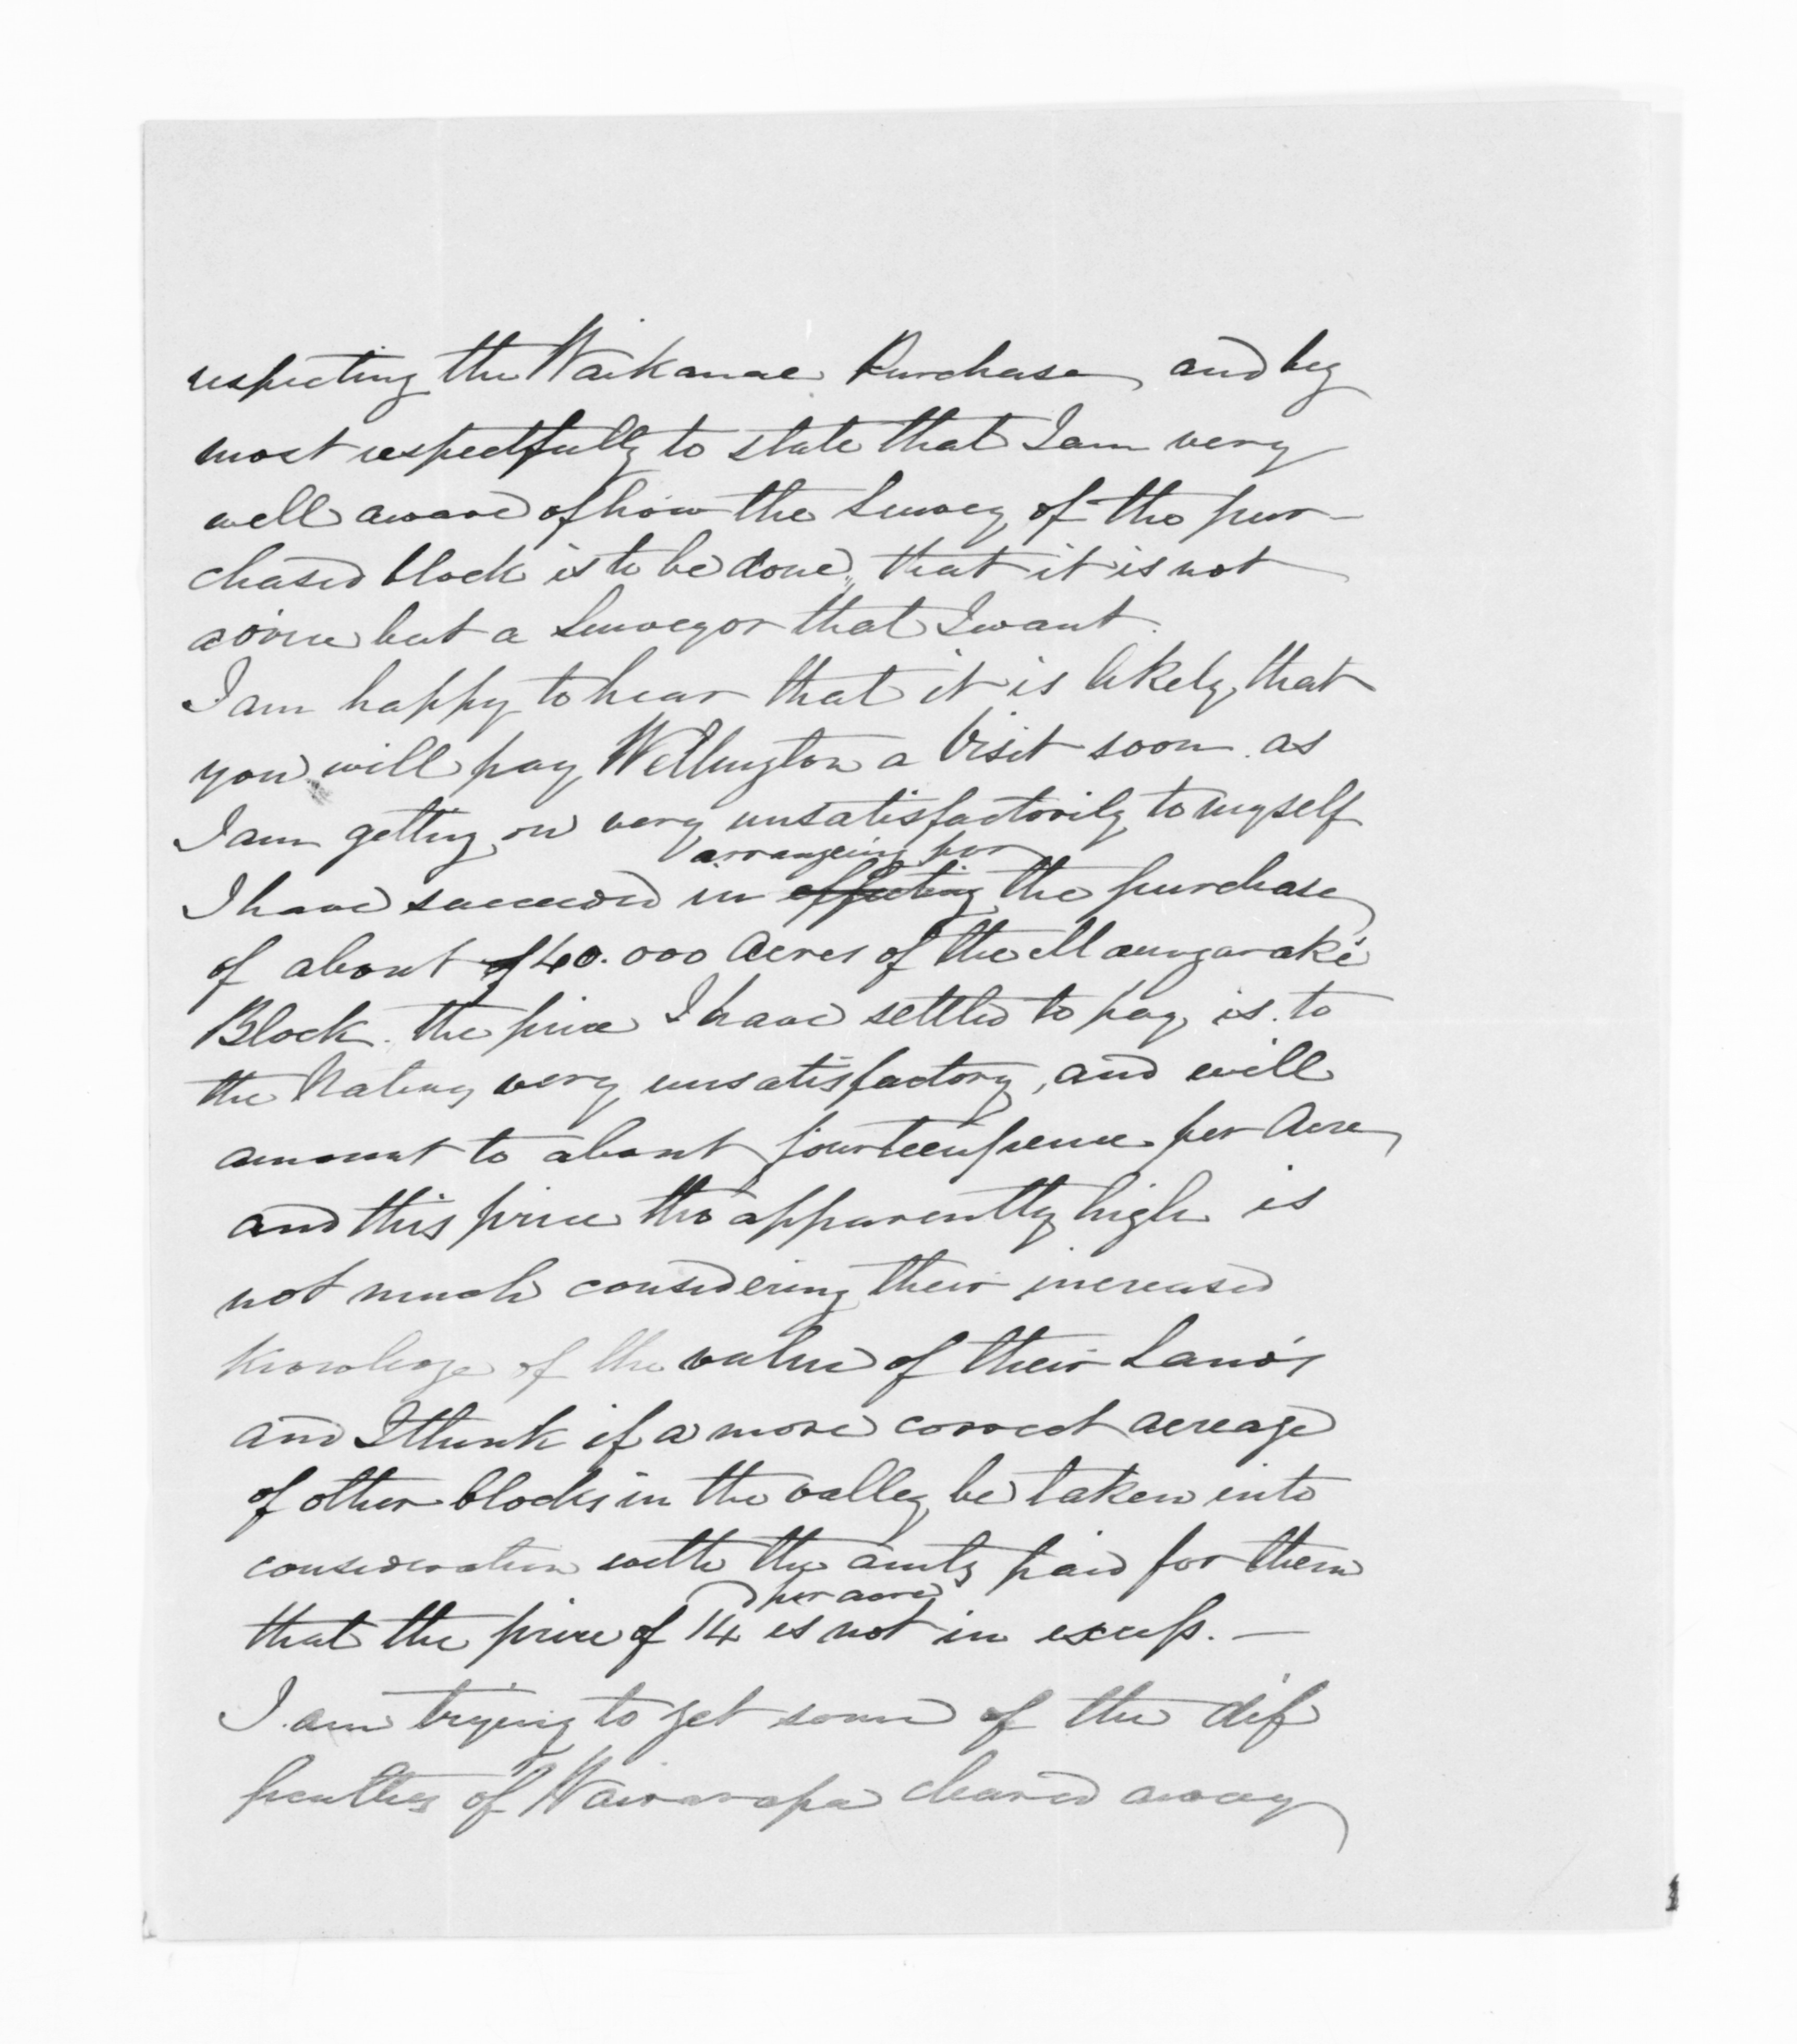 respecting the Waikanae Purchase, and beg
most respectfully to state that I am very
well aware of how the Survey of the pur-
chased block is to be done, that it is not
advice but a Surveyor that I want.
I am happy to hear that it is likely that
you will pay Wellington a Visit soon as
I am getting on very unsatisfactorily to myself
arrangeing for
I have succeeded in effecting the purchase
of about 40.000 Acres of the Maungaraki
Block. the price I have settled to pay is to
the Natives very unsatisfactory, and will
amount to about fourteenpence per Acre
and this price tho' apparently high is
not much considering their increased
Knowledge of the value of their Lands
and I think if a more correct acreage
of other blocks in the valley be taken into
consideration with the amts paid for them
per acre
that the price of 14 is not in excess. —
I am trying to get some of the dif
ficulties of Wairarapa cleared away